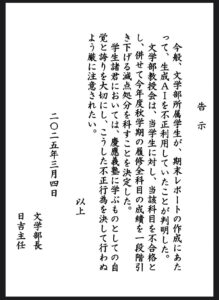 告示
今般、文学部所属学生が、期末レポートの作成にあた
って、生成AIを不正利用していたことが判明した。
文学部教授会は、当学生に対し、当該科目を不合格と
し、併せて今年度秋学期の履修全科目の成績を一段階引
き下げる減点処分を科すことを決定した。
学生諸君においては、慶應義塾に学ぶものとしての自
覚と誇りを大切にし、こうした不正行為を決して行わぬ
よう厳に注意されたい。
以上
二〇二五年三月四日
文学部長
日吉主任